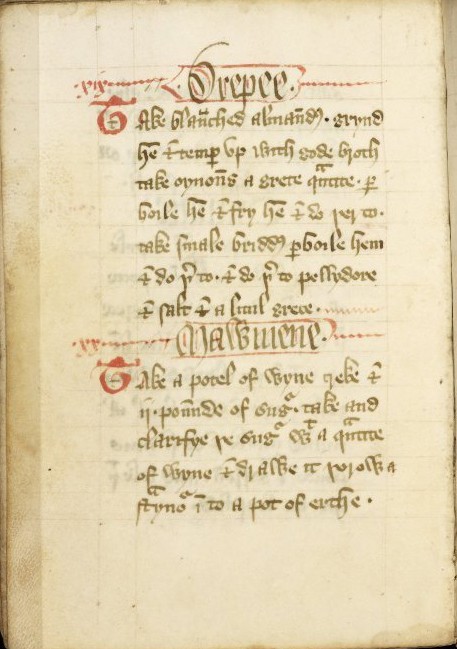 .xix. Drepee.
Take blaũched almañd᷒. grynd
hē ⁊ temp̄ vp with gode broth
take oynoñs a grete q̃titte. ꝑ
boile hē ⁊ fry hē ⁊ do þer to.
take smale bridd᷒ ꝑboile hem
⁊ do þ to. ⁊ do þ to pellydore
⁊ salt ⁊ a litul grece.
.xx. Mawmene.
Take a potel of wyne greke ⁊
ii. pounde of sug᷑. take and
clarifye þe sug᷑ wt a q̃titte
of wyne ⁊ drawe it þorow a
st̃yno᷑ ī to a pot of erthe.